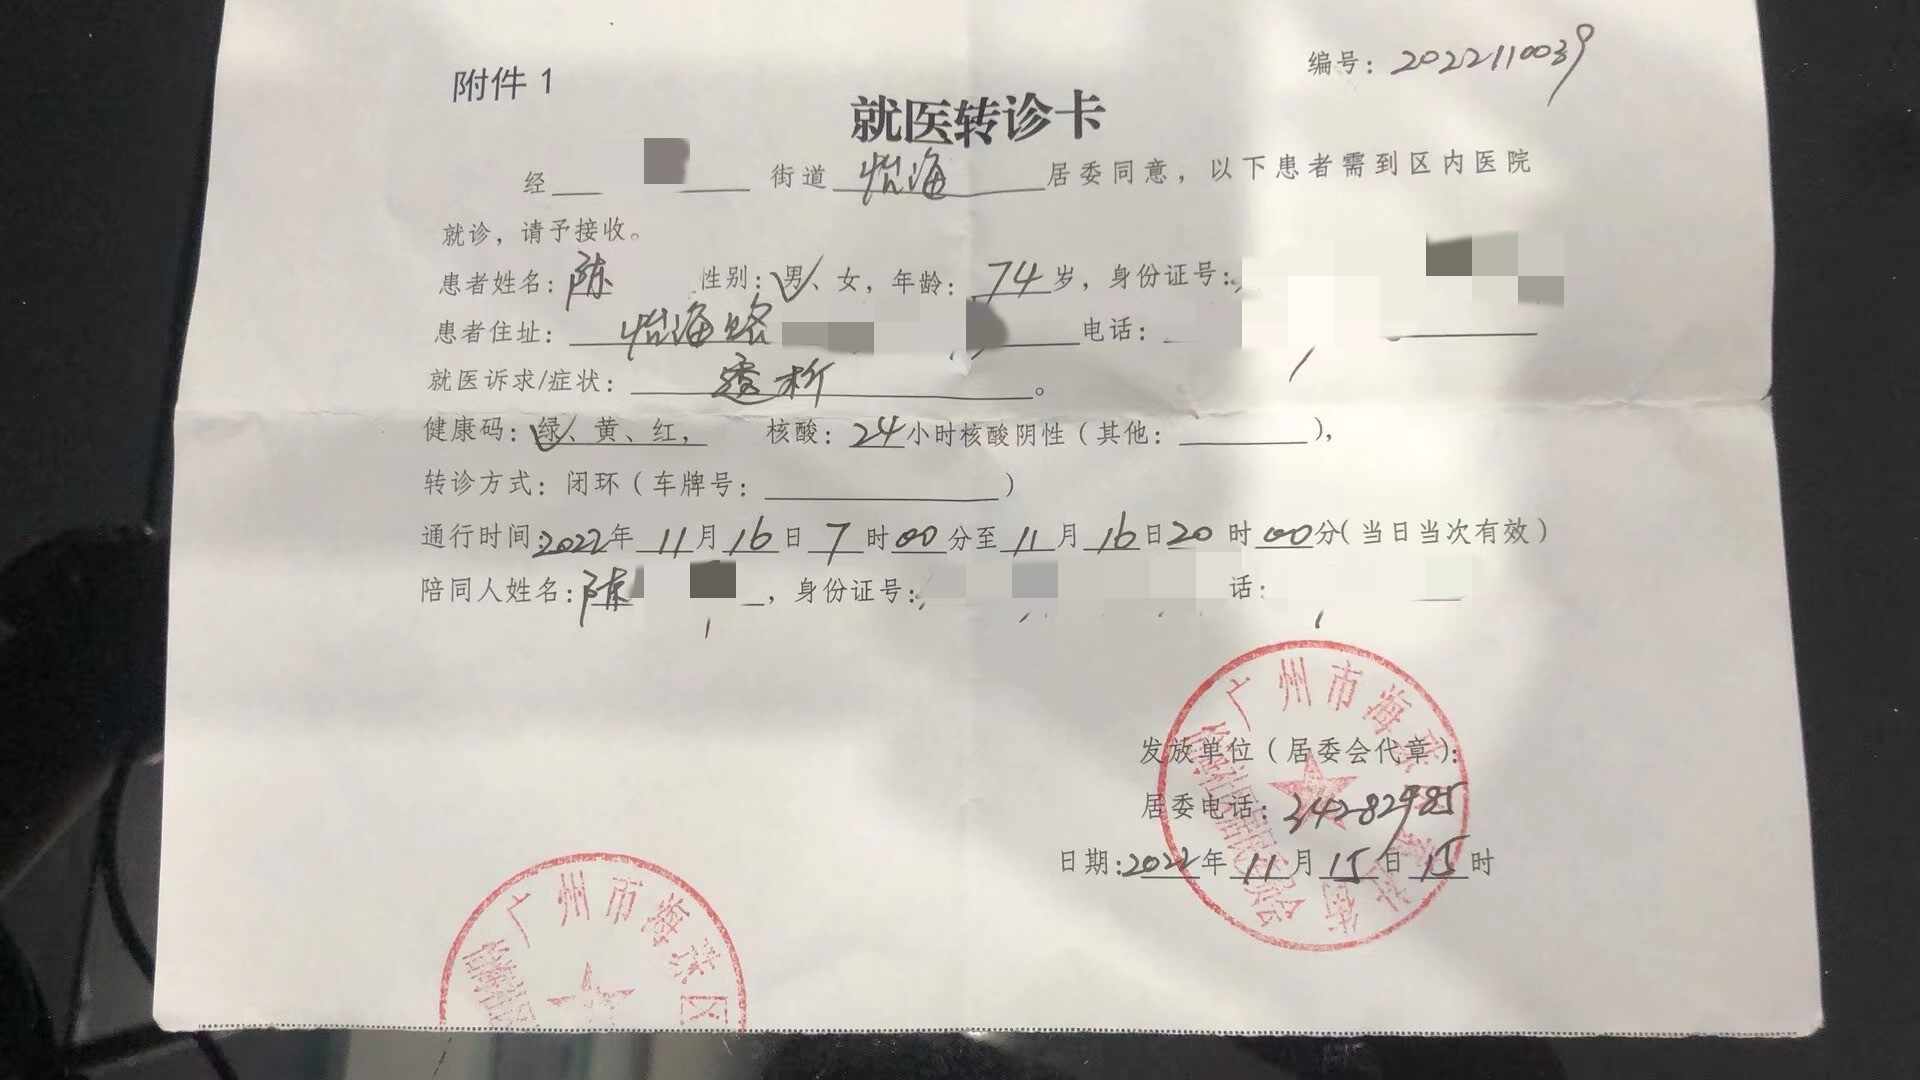 附件 1
编号：2022110039
就医转诊卡
经 街道 怡海 居委同意，以下患者需到区内医院
就诊，请予接收。
患者姓名：陈 性别：男、女，年龄：74岁，身份证号：
患者住址：怡海路 电话：
就医诉求/症状：透析。
健康码：绿、黄、红， 核酸：24小时核酸阴性（其他： ），
转诊方式：闭环（车牌号： ）
通行时间：2022年11月16日7时00分至11月16日20时00分（当日当次有效）
陪同人姓名：陈 ，身份证号： 话：
发放单位（居委会代章）：
居委电话：34282985
日期：2022年11月15日15时
广州市海珠
广州市海珠区